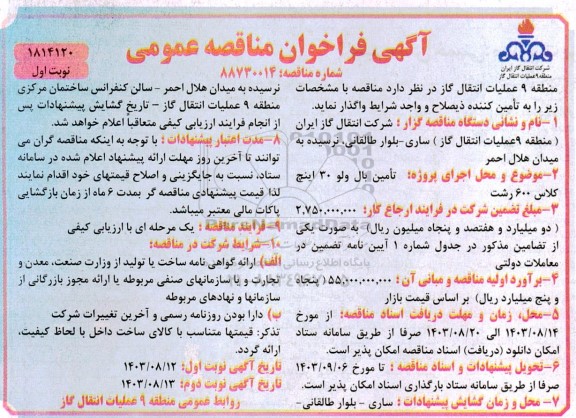 آگهی فراخوان مناقصه عمومی
شماره مناقصه: ۸۸۷۳۰۰۱۴
۱۸۱۴۱۲۰
نوبت اول
شرکت انتقال گاز ایران
منطقه ۹ عملیات انتقال گاز
منطقه ۹ عملیات انتقال گاز در نظر دارد مناقصه با مشخصات
زیر را به تأمین کننده ذیصلاح و واجد شرایط واگذار نماید.
۱–نام و نشانی دستگاه مناقصه گزار : شرکت انتقال گاز ایران
( منطقه ۹عملیات انتقال گاز ) ساری-بلوار طالقانی، نرسیده به
میدان هلال احمر
۲–موضوع و محل اجرای پروژه: تأمین بال ولو ۳۰ اینچ
کلاس ۶۰۰رشت
۳–مبلغ تضمین شرکت در فرایند ارجاع کار: ۲,۷۵۰,۰۰۰,۰۰۰
( دو میلیارد و هفتصد و پنجاه میلیون ریال) به صورت یکی
از تضامین مذکور در جدول شماره ۱ آیین نامه تضمین در
معاملات دولتی
۴–برآورد اولیه مناقصه و مبانی آن : ۵۵,۰۰۰,۰۰۰,۰۰۰( پنجاه
و پنج میلیارد ریال) بر اساس قیمت بازار
۵–محل، زمان و مهلت دریافت اسناد مناقصه: از مورخ
۱۴۰۳/۰۸/۱۴ الی ۱۴۰۳/۰۸/۲۰ صرفا از طریق سامانه ستاد
امکان دانلود (دریافت) اسناد مناقصه امکان پذیر است.
۶–تحویل پیشنهادات و اسناد مناقصه : تا مورخ ۱۴۰۳/۰۹/۰۶
صرفا از طریق سامانه ستاد بارگذاری اسناد امکان پذیر است.
۷– محل و زمان گشایش پیشنهادات : ساری - بلوار طالقانی-
نرسیده به میدان هلال احمر - سالن کنفرانس ساختمان مرکزی
منطقه ۹ عملیات انتقال گاز – تاریخ گشایش پیشنهادات پس
از انجام فرایند ارزیابی کیفی متعاقباً اعلام خواهد شد.
۸–مدت اعتبار پیشنهادات : با توجه به اینکه مناقصه گران می
توانند تا آخرین روز مهلت ارائه پیشنهاد اعلام شده در سامانه
ستاد، نسبت به جایگزینی و اصلاح قیمتهای خود اقدام نمایند
لذا قیمت پیشنهادی مناقصه گر بمدت ۶ ماه از زمان بازگشایی
پاکات مالی معتبر میباشد.
۹– فرایند مناقصه : یک مرحله ای با ارزیابی کیفی
۱۰– شرایط شرکت در مناقصه:
الف) ارائه گواهی نامه ساخت یا تولید از وزارت صنعت، معدن و
تجارت و یا سازمانهای صنفی مربوطه یا ارائه مجوز بازرگانی از
سازمانها و نهادهای مربوطه
ب) دارا بودن روزنامه رسمی و آخرین تغییرات شرکت
تذکر: قیمتها متناسب با کالای ساخت داخل با لحاظ کیفیت،
ارائه گردد.
تاریخ آگهی نوبت اول: ۱۴۰۳/۰۸/۱۲
تاریخ آگهی نوبت دوم: ۱۴۰۳/۰۸/۱۳
روابط عمومی منطقه ۹ عملیات انتقال گاز